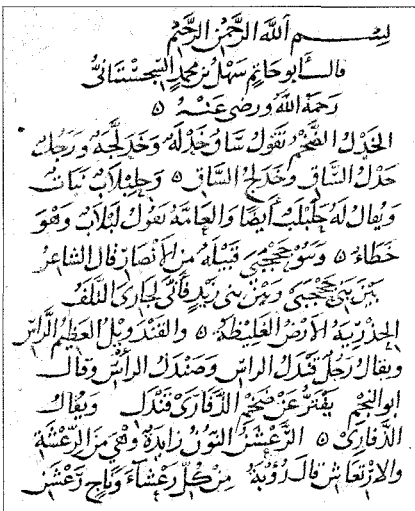 بسم الله الرحمن الرحيم
قال أبو حاتم سهل بن محمد السجستاني
رحمة الله ورضى عنه ه
الخدل الضخم تقول ساق خدلة وخدلجة ورجل
خدل الساق وخدلج الساق ه وحلبلاب نبات
ويقال له حلبلب أيضا والعامة تقول لبلاب وهو
خطاء ه وبنو جحجبى قبيلة من الأنصار قال الشاعر
بين بني جحجبى وبين بني زيد فأنى لجارى التلف
الحذرية الأرض الغليظة ه والقندويل العظيم الراس
ويقال رجل قندل الراس وصندل الراس وقال
ابو النجم يفتر عن ضخم الذفارى قندل ويقال
الذفارى ه الرعشن النون زايدة وهي من الرعشة
والارتعاش قال رؤبة من كل رعشاء وناج رعشن